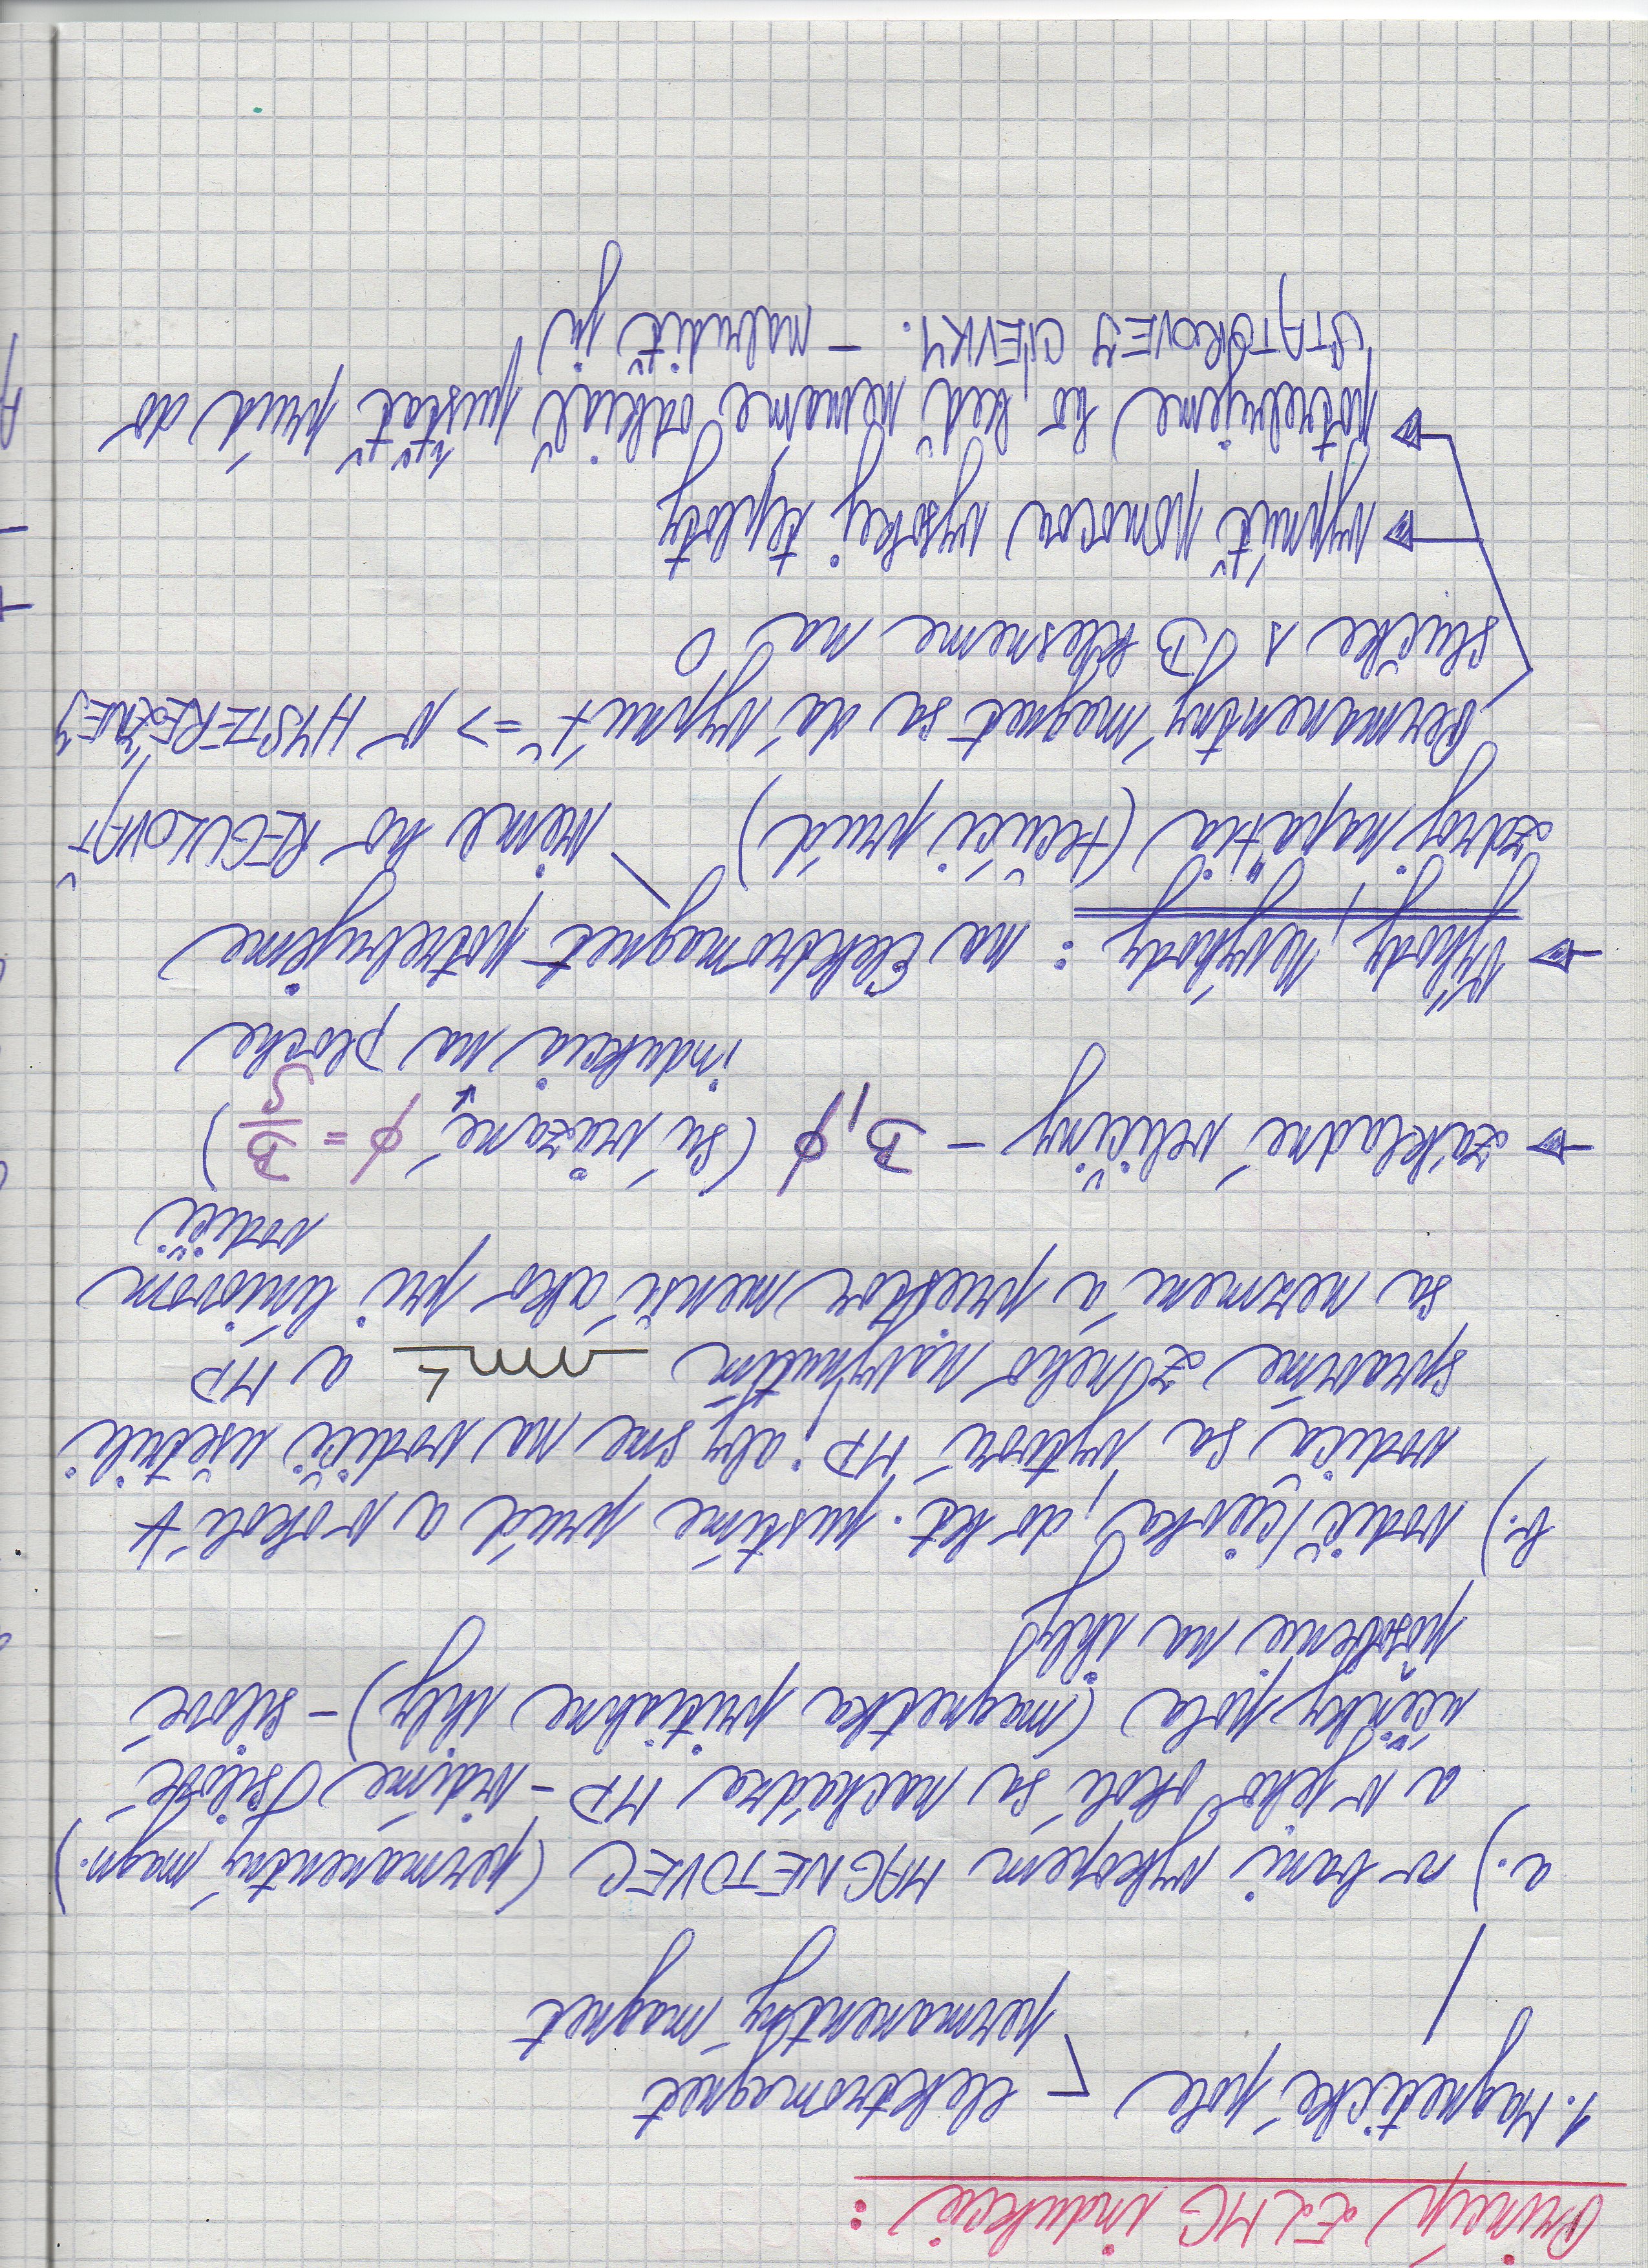 Princíp ELMG indukcie :
1. Magnetické pole - elektromagnet
permanentný magnet
a.) v bani vykopem MAGNETOVEC (permanentný magn.)
a v jeho okolí sa nachádza MP - vidíme silové
účinky pola (magnetka pritiahne ihly) - silové
pôsobenie na ihly
b.) vodič/cievka, do kt. pustíme prúd a v okolí ∀
vodiča sa vytvorí MP; aby sme na vodiči ušetrili
spravíme z neho navynutím L a MP
sa nezmení a priestor menší ako pri líniovom
vodiči
→ základné veličiny - B, ϕ (sú viazané, ϕ = B/S)
indukcia na ploche
→ Výhody, Nevýhody : na Elektromagnet potrebujeme
zdroj napätia (tečúci prúd) vieme ho REGULOVAŤ
Permanentný magnet sa dá vypnúť => v HYSTERÉZNEJ
slučke s B klesneme na 0
→ vypnúť pomocou vysokej teploty
→ potrebujeme ho, keď nemáme odkiaľ púšťať prúd do
STATOROVEJ CIEVKY. - nabudiť ju